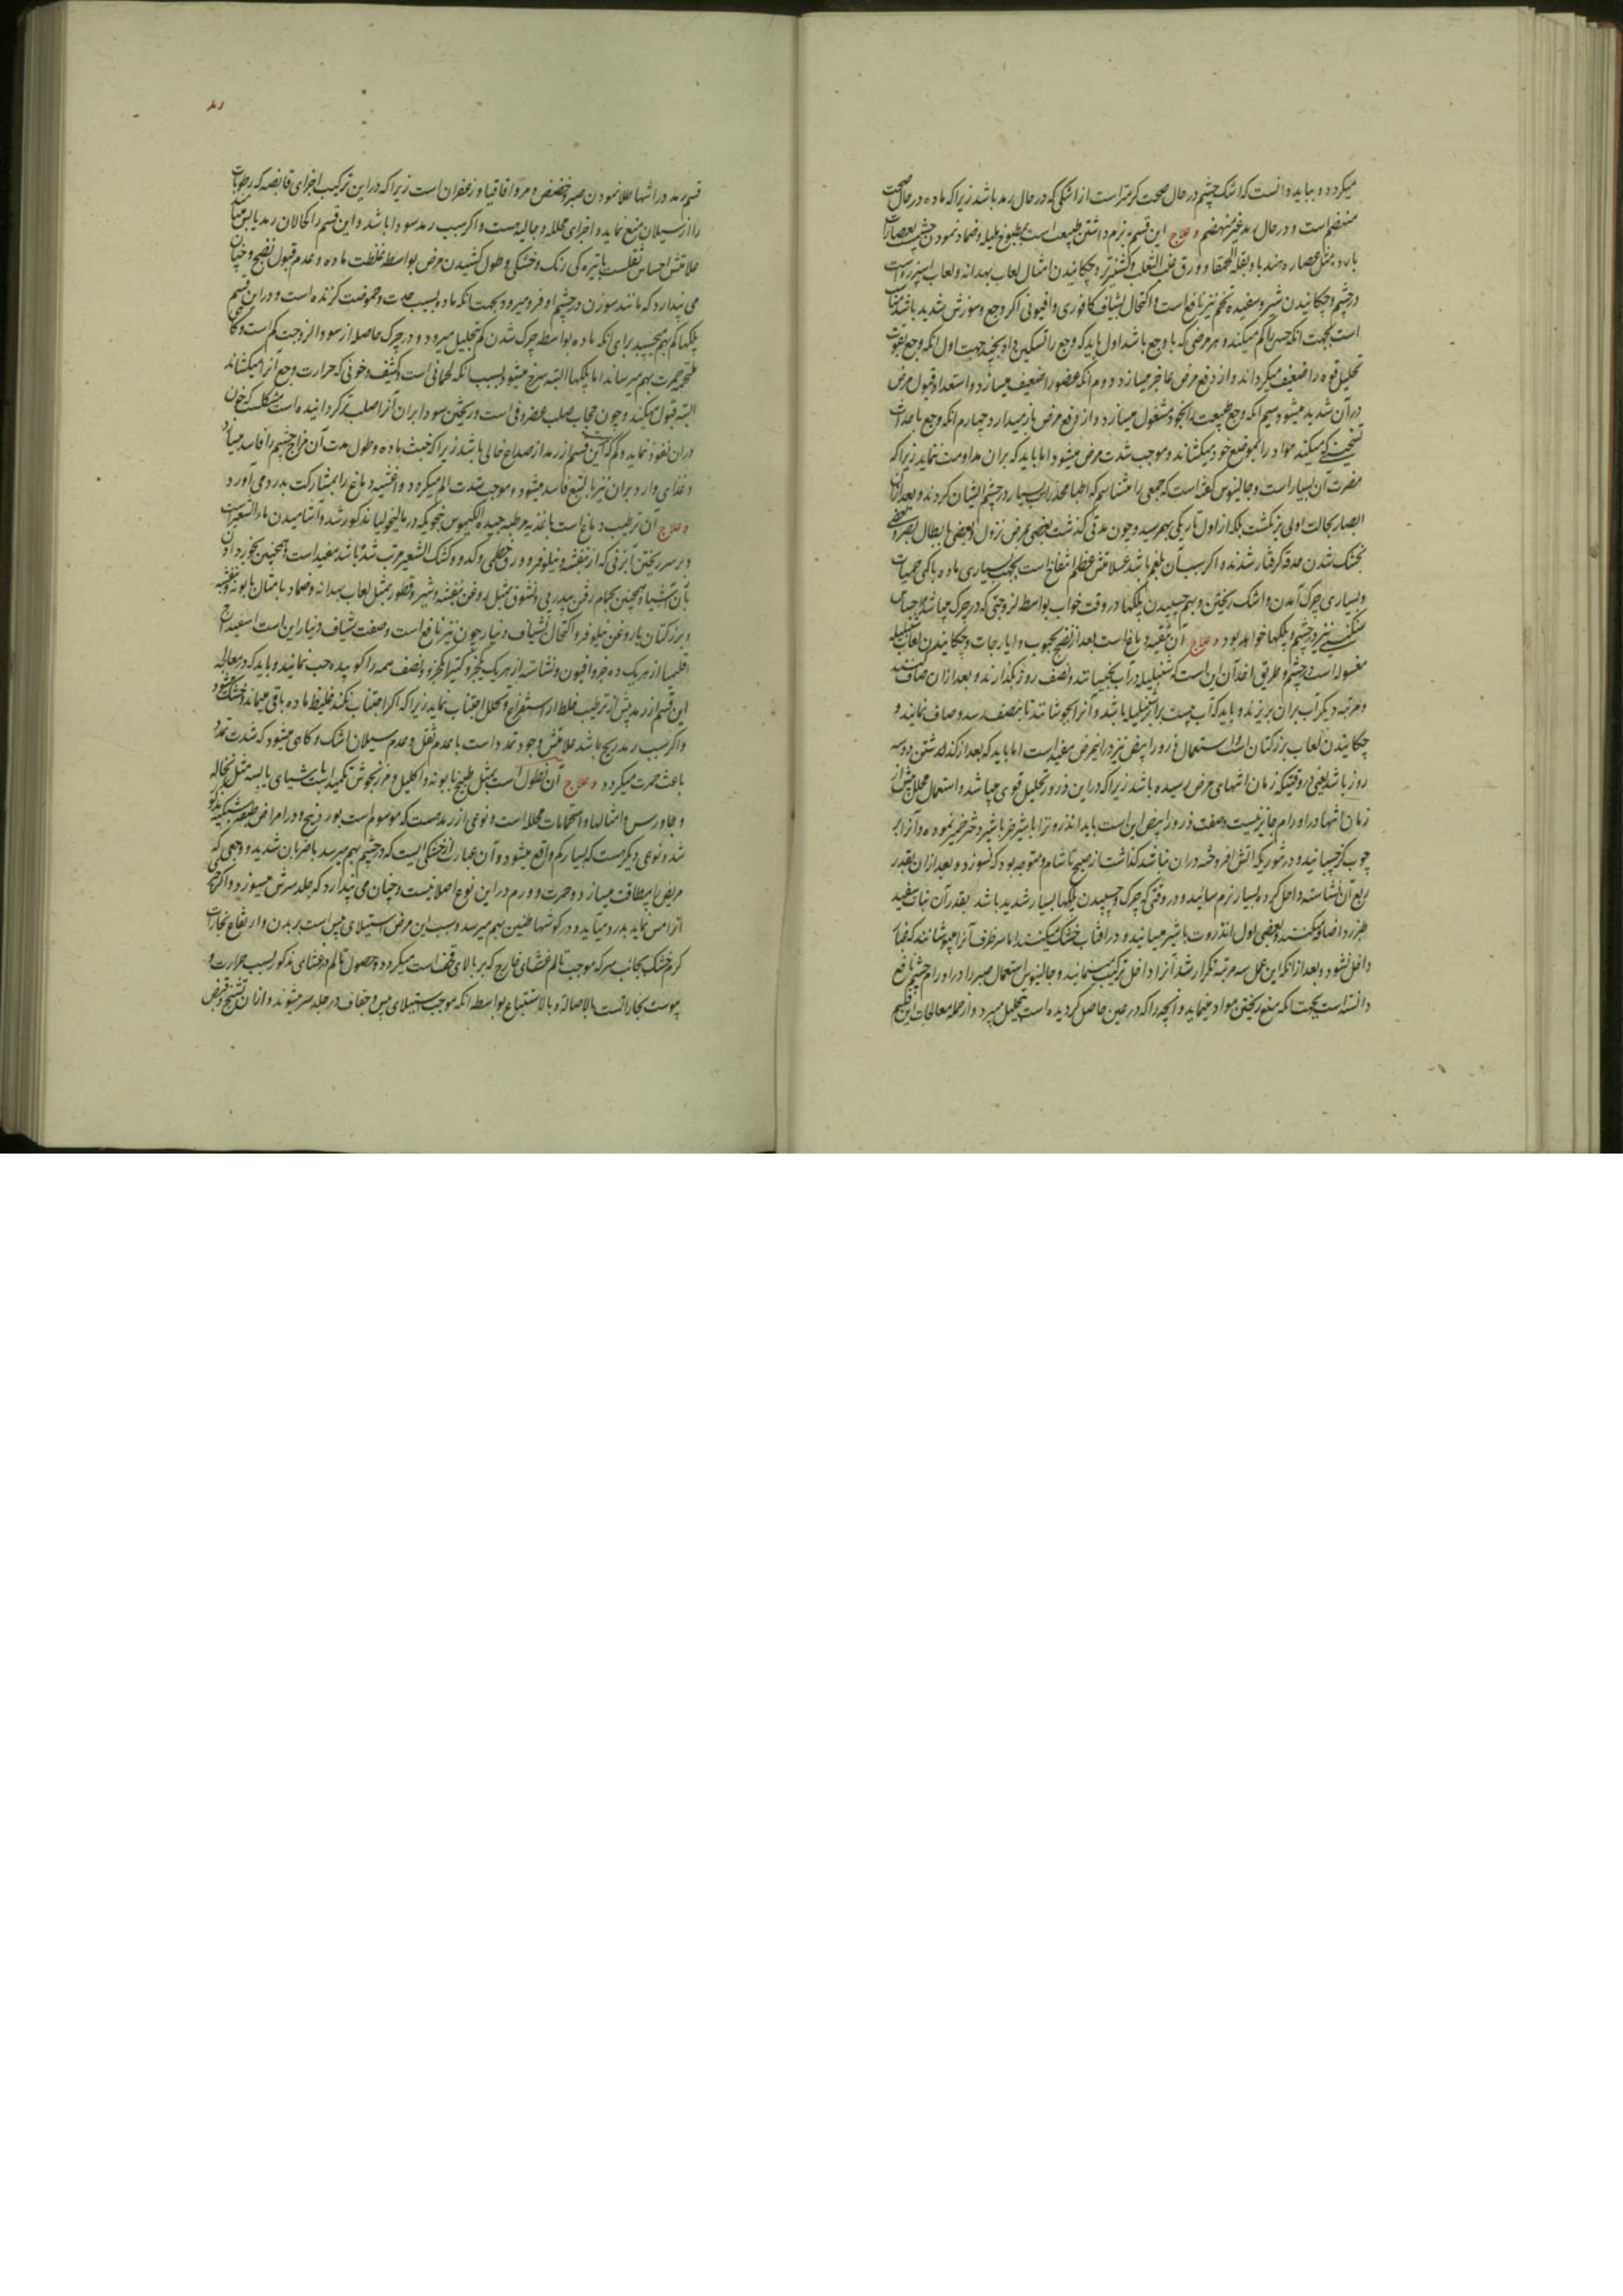 میکردد و بباید دانست که اشک چشم در حال صحت کرمتر است از اشکی که در حال رمد باشد زیرا که ماده در حال صحت
منهضم است و در حال رمد غیر منهضم و علاج این قسم نرم داشتن طبیعت است بمطبوخ هلیله و ضماد نمودن چشم بعصارات
بارده مثل عصاره هندبا و بقلة الحمقا و ورق عنب الثعلب و کشنیز تر و چکانیدن امثال لعاب بهدانه و لعاب اسپرزه است
در چشم و چکانیدن شیر و سفیده تخم نیز نافع است و اکتحال بشیاف کافوری و افیونی اکر وجع و سوزش شدید باشد
است بجهت انکه حس را کم میکند و هر مرضی که با وجع باشد اول باید که وجع را تسکین داد بجهت اول انکه وجع بقوت
تحلیل قوه را ضعیف میکرداند و از دفع مرض عاجز میسازد دوم انکه عضو را ضعیف میسازد و استعداد قبول مرض
در آن شدید میشود سیم انکه وجع طبیعت را بخود مشغول میسازد و از دفع مرض باز میدارد چهارم انکه وجع باحداث
تسخینی که میکند مواد را بموضع خود میکشاند و موجب شدت مرض میشود اما باید که بران مداومت ننماید زیرا که
مضرت آن بسیار است و جالینوس کفته است که جمعی را میشناسم که اطبا مخدرات بسیار در چشم ایشان کردند و بعد ازان
ابصار بحالت اولی برنکشت بلکه از اول تاریکی بهم رسید و چون مدتی کذشت بعضی بمرض نزول و بعضی بابطال بصر و بعضی
بخشک شدن حدقه کرفتار شدند و اکر سبب آن بلغم باشد علامتش عظم انتفاخ است بجهت بسیاری ماده با کمی حمرت
و بسیاری چرک آمدن و اشک ریختن و بهم چسپیدن پلکها در وقت خواب بواسطه لزوجتی که در چرک میباشد و احساس
سنکینی نیز در چشم و پلکها خواهد بود و علاج آن تنقیه دماغ است بعد از نضج بحبوب و ایارجات و چکانیدن لعاب شنبلیله
مغسوله است در چشم و طریق اخذ آن این است که شنبلیله در آب بخیسانند و نصف روز بکذارند و بعد ازان صاف کنند
و مرتبه دیکر آب بران بریزند و باید که آب بیست برابر شنبلیله باشد و آنرا بجوشانند تا بنصف رسد و صاف نمایند و
چکانیدن لعاب بزر کتان است و استعمال ذرور ابیض نیز درین مرض مفید است اما باید که بعد از کذشتن دو سه
روز باشد یعنی در وقتیکه زمان انتهای مرض رسیده باشد زیرا که در این ذرور تحلیل قوی میباشد و استعمال محلل پیش از
زمان انتها در اورام جایز نیست و صفت ذرور ابیض این است باید انذروت را با شیر خر یا شیر دختر خمیر نموده و آنرا بر
چوب کز چسپانید و در تنوریکه اتش افروخته دران نباشد کذاشت از صبح تا شام و متوجه بود که نسوزد و بعد ازان بقدر
ربع آن نشاسته داخل کرده بسیار نرم سائید و در وقتی که چرک و چسپیدن پلکها بسیار شدید باشد بقدر آن نبات سفید
طبرزد اضافه میکنند و بعضی اول انذروت با شیر میسانند و در افتاب خشک میکنند اما سر ظرف آنرا میپوشانند که غبار
داخل نشود و بعد از انکه این عمل سه مرتبه تکرار شد آنرا داخل ترکیب مینمایند و جالینوس استعمال صبر را در اورام چشم نافع
دانسته است بجهت انکه منع ریختن مواد مینماید و آنچه را که در عین حاصل کردیده است تحلیل میبرد و از جمله معالجات این
قسم رمد در انتها طلا نمودن صبر و حضض و مر و اقاقیا و زعفران است زیرا که در این ترکیب اجزای قابضه که رطوبات
را از سیلان منع نماید و اجزای محلله و جالیه هست و اکر سبب رمد سودا باشد و این قسم را کحالان رمد یابس
علامتش احساس ثقلست با تیره کی رنک و خشکی و طول کشیدن مرض بواسطه غلظت ماده و عدم قبول نضج و چنان
می پندارد که مانند سوزن در چشم او فرو میرود بجهت انکه ماده بسبب حدت و حموضت کزنده است و در این قسم
پلکها کم بهم میچسپد برای انکه ماده بواسطه چرک شدن کم بتحلیل میرود و در چرک حاصل از سودا لزوجت کم است و کاهی
ملتحمه حمرت بهم میرساند اما پلکها البته سرخ میشود بسبب انکه لحمانی است و کثیف و خونی که حرارت وجع آنرا میکشاند
البته قبول میکند و چون حجاب صلب غضروفی است و ریختن سودا بران آنرا صلب تر کردانیده است مشکلست که خون
دران نفوذ نماید و کم است که این قسم از رمد از صداع خالی باشد زیرا که خبث ماده و طول مدت آن مزاج چشم را فاسد میسازد
و غذای وارد بران نیز بالتبع فاسد میشود و موجب شدت الم میکردد و اغشیه دماغ را بمشارکت بدرد می آورد
و علاج آن ترطیب دماغ است باغذیه مرطبه جیده الکیموس بنحویکه در مالیخولیا مذکور شد و آشامیدن ماء الشعیر است
و بر سر ریختن آبزنی که از بنفشه و نیلوفر و ورق خطمی و کدو و کشک الشعیر مرتب شده باشد مفید است و همچنین بخور دادن
بآن اشیا و همچنین بحمام رفتن پیدرپی و نشوق بمثل روغن بنفشه و شیر و قطور بمثل لعاب بهدانه و ضماد بامثال بابونه و بنفشه
و بزر کتان با روغن نیلوفر و اکتحال بشیاف دینارجون نیز نافع است و صفت شیاف دینار این است اسفیداج
اقلیمیا از هر یک ده جزو افیون و نشاسته از هر یک یکجزو کتیرا یکجزو و نصف همه را کوبیده حب نمایند و باید که در معالجه
این قسم از رمد پیش از ترطیب خلط از استفراغ و تحلل اجتناب نماید زیرا که اکر اجتناب نکند غلیظ ماده باقی میماند و خشک میشود
و اکر سبب رمد ریح باشد علامتش وجود تمدد است با عدم ثقل و عدم سیلان اشک و کاهی میشود که شدت تمدد
باعث حمرت میکردد و علاج آن نطول است بمثل طبیخ بابونه و اکلیل و مرزنجوش و تکمید است باشیای یابسه مثل نخاله
و جاورس و امثالها و استحمامات محلله است و نوعی از رمد هست که موسوم است بوردینج و در امراض طبقه شبکیه مذکور
شد و نوعی دیکر هست که بسیار کم واقع میشود و آن عبارت از خشکی ایست که در چشم بهم میرسد با ضربان شدید و وجعی که
مریض را بیطاقت میسازد و حمرت و ورم در این نوع اصلا نیست و چنان می پندارد که جلد سرش میسوزد و اکر
انرا مس نماید بدرد میآید و در کوشها طنین بهم میرسد و سبب این مرض استیلای یبس است بر بدن و ارتفاع بخارات
کرم خشک بجانب سر که موجب تالم غشای خارج که بر بالای قحف است میکردد و حصول تالم در غشای مذکور بسبب حرارت و
یبوست بخار است بالاصاله و بالاستتباع بواسطه انکه موجب استیلای یبس و جفاف در جلد سر میشوند و ازان تشنج و قبض